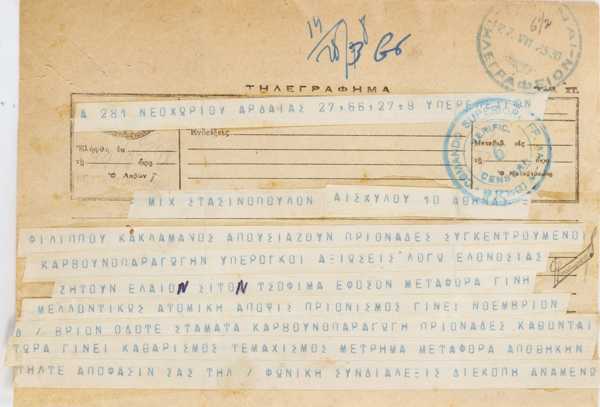 14
ΤΗΛΕΓΡΑΦΗΜΑ
Α 281 ΝΕΟΧΩΡΙΟΥ ΑΡΔΑΙΑΣ 27,66,27,9 ΥΠΕΡΕΠΕΙΓΩΝ
Ἐνδείξεις
Ἐλήφθη ἐκ
τῇ ὥρᾳ
Ὁ Λαβὼν
Μετεβιβ. εἰς
τῇ ὥρᾳ
Ὁ Μεταβιβάσας
COMANDO SUPERIORE
VERIFIC.
CENSURA
= ΜΙΧ ΣΤΑΣΙΝΟΠΟΥΛΟΝ ΑΙΣΧΥΛΟΥ 10 ΑΘΗΝΑΣ =
ΦΙΛΙΠΠΟΥ ΚΑΚΛΑΜΑΝΟΣ ΑΠΟΥΣΙΑΖΟΥΝ ΠΡΙΟΝΑΔΕΣ ΣΥΓΚΕΝΤΡΟΥΜΕΝΟΙ
ΚΑΡΒΟΥΝΟΠΑΡΑΓΩΓΗΝ ΥΠΕΡΟΓΚΟΙ ΑΞΙΩΣΕΙΣ ΛΟΓΩ ΕΛΟΝΟΣΙΑΣ
ΖΗΤΟΥΝ ΕΛΑΙΟΝ ΣΙΤΟΝ ΤΣΟΦΙΜΑ ΕΦΟΣΟΝ ΜΕΤΑΦΟΡΑ ΓΙΝΗ
ΜΕΛΛΟΝΤΙΚΩΣ ΑΤΟΜΙΚΗ ΑΠΟΨΙΣ ΠΡΙΟΝΙΣΜΟΣ ΓΙΝΕΙ ΝΟΕΜΒΡΙΟΝ
Δ / ΒΡΙΟΝ ΟΔΟΤΕ ΣΤΑΜΑΤΑ ΚΑΡΒΟΥΝΟΠΑΡΑΓΩΓΗ ΠΡΙΟΝΑΔΕΣ ΚΑΘΟΝΤΑΙ
ΤΩΡΑ ΓΙΝΕΙ ΚΑΘΑΡΙΣΜΟΣ ΤΕΜΑΧΙΣΜΟΣ ΜΕΤΡΗΜΑ ΜΕΤΑΦΟΡΑ ΑΠΟΘΗΚΗΝ
ΤΗΛΤΕ ΑΠΟΦΑΣΙΝ ΣΑΣ ΤΗΛ / ΦΩΝΙΚΗ ΣΥΝΔΙΑΛΕΞΙΣ ΔΙΕΚΟΠΗ ΑΝΑΜΕΝΩ